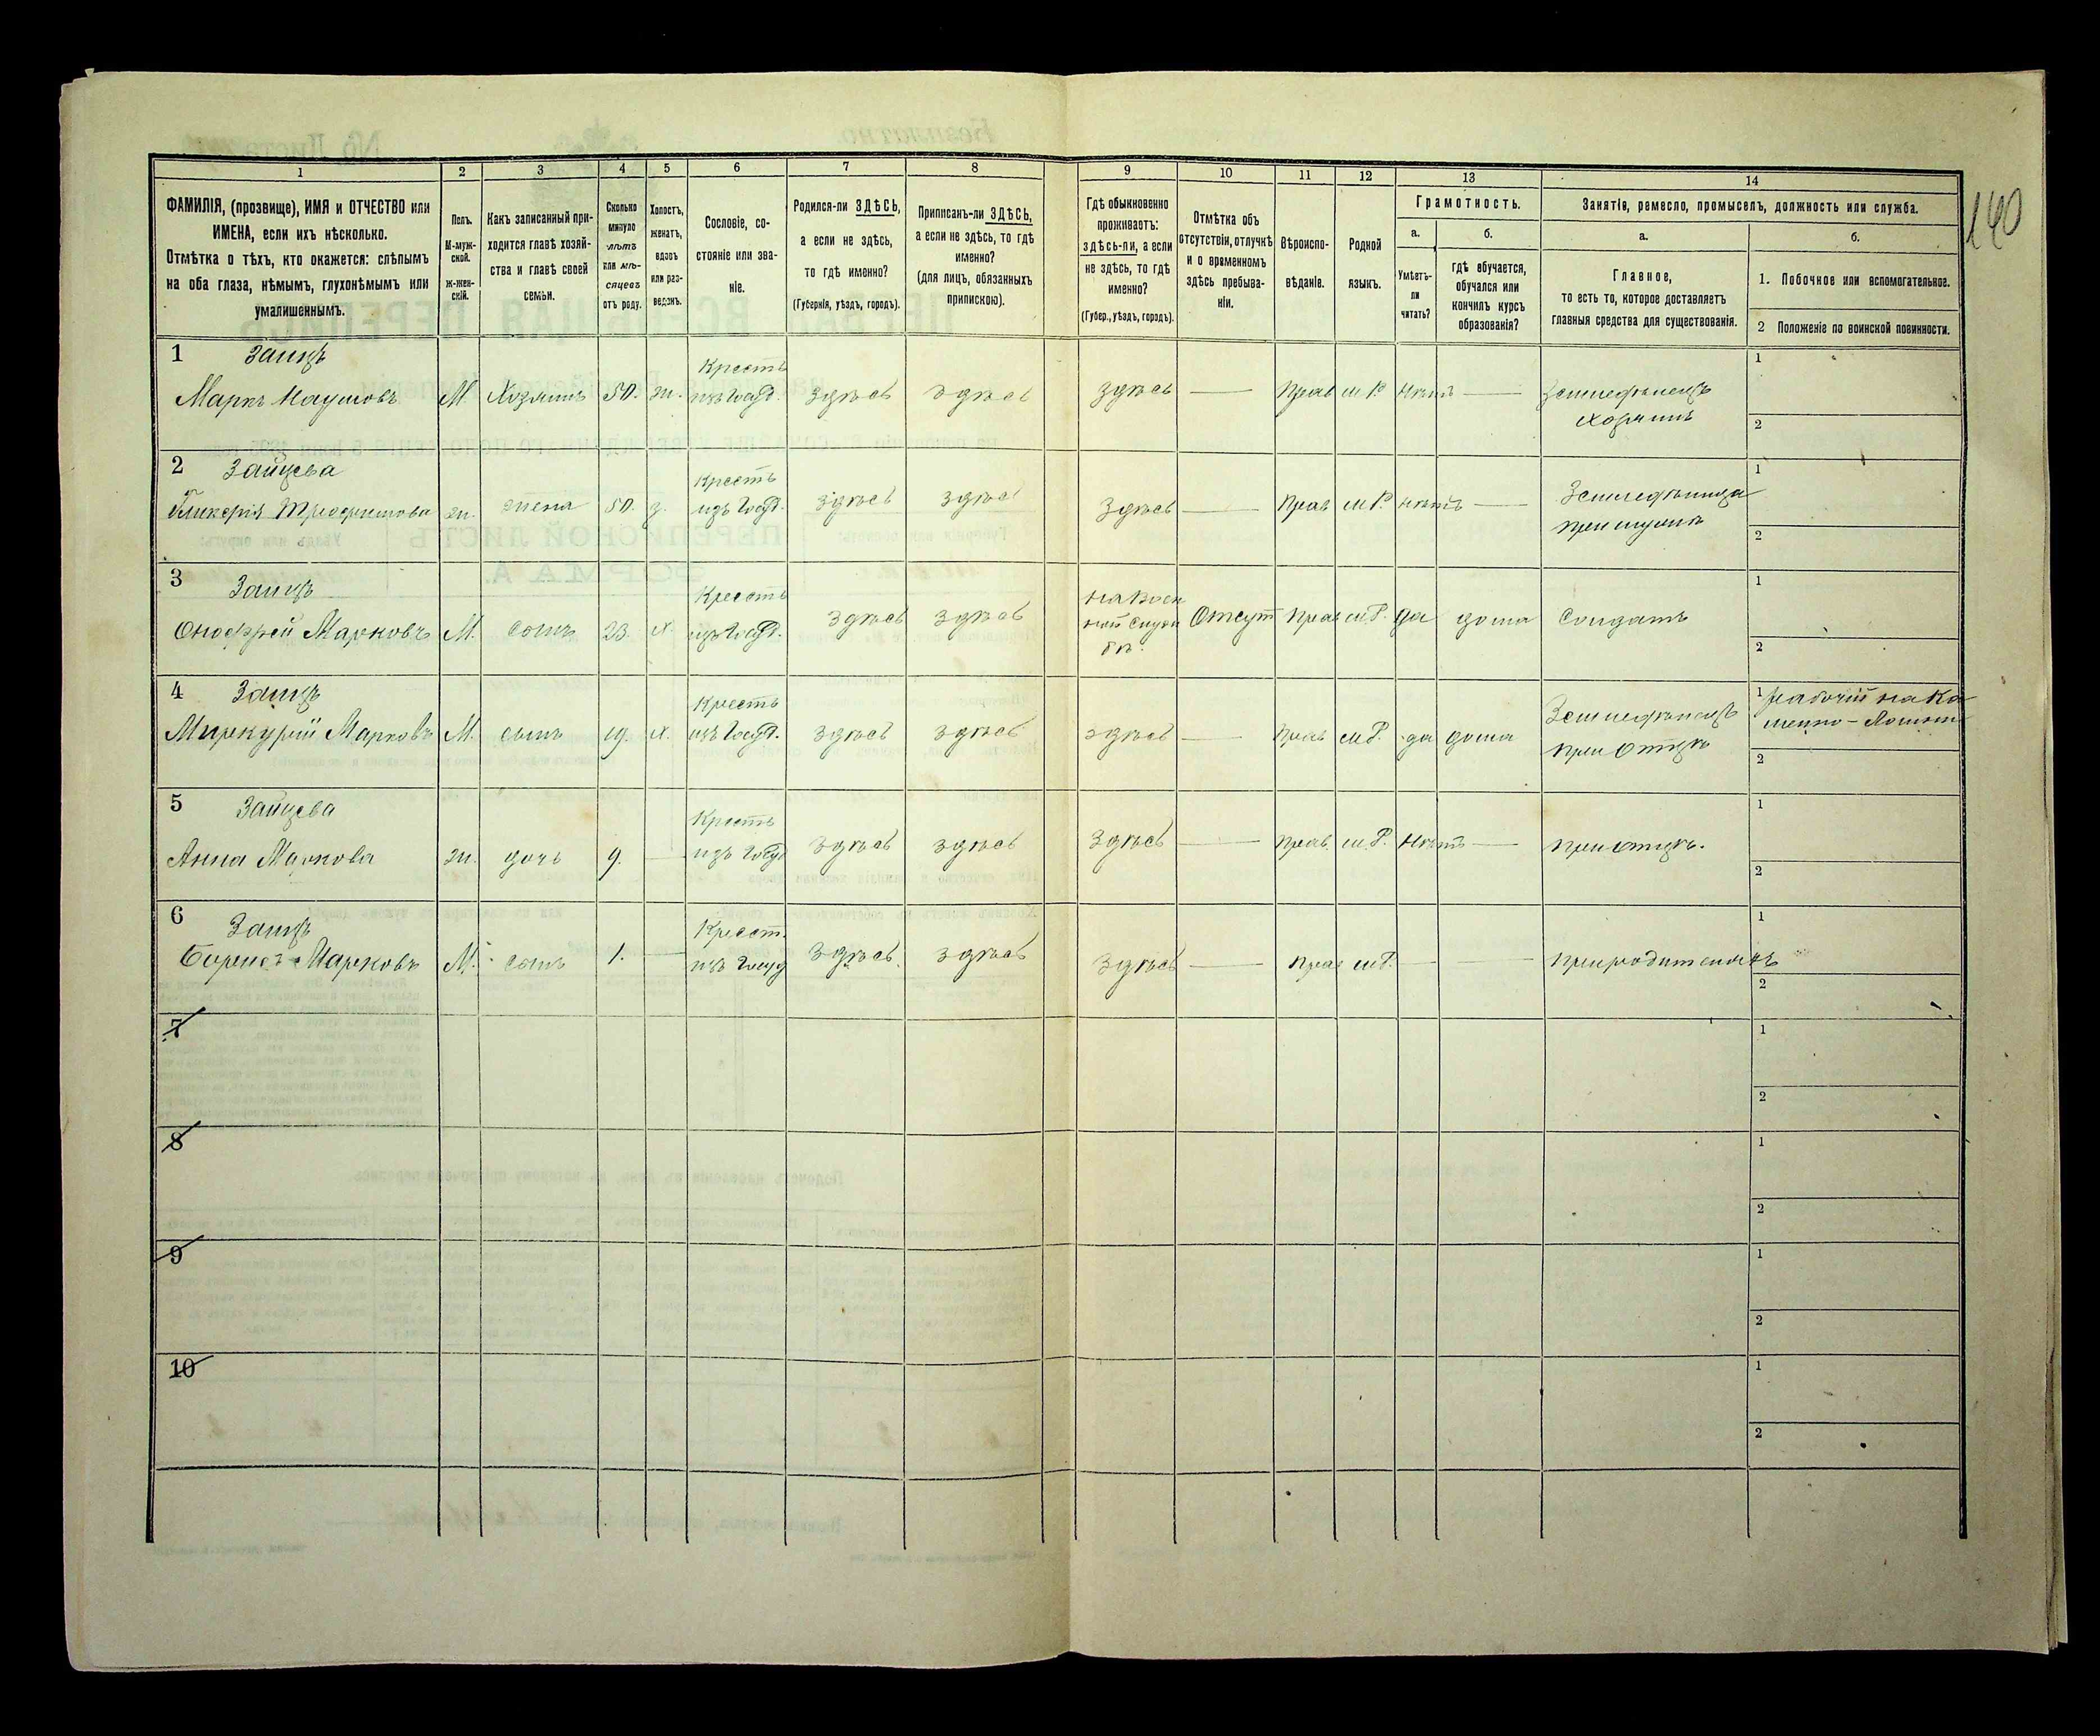 140
1 2 3 4 5 6 7 8 9 10 11 12 13 14
ФАМИЛІЯ, (прозвище), ИМЯ и ОТЧЕСТВО или
ИМЕНА, если ихъ нѣсколько.
Отмѣтка о тѣхъ, кто окажется: слѣпымъ
на оба глаза, нѣмымъ, глухонѣмымъ или
умалишеннымъ.
Полъ.
М-муж-
ской.
ж-жен-
скій.
Какъ записанный при-
ходится главѣ хозяй-
ства и главѣ своей
семьи.
Сколько
минуло
лѣтъ
или мѣ-
сяцевъ
отъ роду.
Холостъ,
женатъ,
вдовъ
или раз-
веденъ.
Сословіе, со-
стояніе или зва-
ніе.
Родился-ли ЗДѢСЬ,
а если не здѣсь,
то гдѣ именно?
(Губернія, уѣздъ, городъ).
Приписанъ-ли ЗДѢСЬ,
а если не здѣсь, то гдѣ
именно?
(для лицъ, обязанныхъ
припискою).
Гдѣ обыкновенно
проживаетъ:
здѣсь-ли, а если
не здѣсь, то гдѣ
именно?
(Губер., уѣздъ, городъ).
Отмѣтка объ
отсутствіи, отлучкѣ
и о временномъ
здѣсь пребыва-
ніи.
Вѣроиспо-
вѣданіе.
Родной
языкъ.
Грамотность.
а.
Умѣетъ-
ли
читать?
б.
гдѣ обучается,
обучался или
кончилъ курсъ
образованія?
Занятіе, ремесло, промыселъ, должность или служба.
а.
Главное,
то есть то, которое доставляетъ
главныя средства для существованія.
б.
1. Побочное или вспомогательное.
2 Положеніе по воинской повинности.
1 Заицъ Крестъ 1
Маркъ Наумовъ М. Хозяинъ 50. ж. изъ Госуд. здѣсь здѣсь здѣсь — Прав м.Р. Нѣтъ — Земледѣлецъ
хозяинъ 2
2 Зайцева Крестъ 1
Гликерія Трофимова ж. жена 50. з. изъ Госуд. здѣсь здѣсь здѣсь — Прав м.Р. нѣтъ — Земледѣлица
при мужѣ 2
3 Заицъ Крестъ на воен 1
Онофрей Марковъ М. сынъ 23. х. изъ Госуд. здѣсь здѣсь ной служ Отсут Прав м.Р. да дома Солдатъ
бѣ. 2
4 Заицъ Крестъ 1 рабочій на Ка
Миркурій Марковъ М. сынъ 19. х. изъ Госуд. здѣсь здѣсь здѣсь — Прав м.Р. да дома Земледѣлецъ
при отцѣ 2
5 Зайцева Крестъ 1
Анна Маркова ж. дочь 9. — изъ Госуд здѣсь здѣсь здѣсь — Прав. м.Р. Нѣтъ — при отцѣ. 2
6 Заицъ Крест. 1
Борисъ Марковъ М. сынъ 1. — изъ Госуд здѣсь здѣсь здѣсь — Прав м.Р. — — при родителяхъ 2
7 1
2
8 1
2
9 1
2
10 1
2